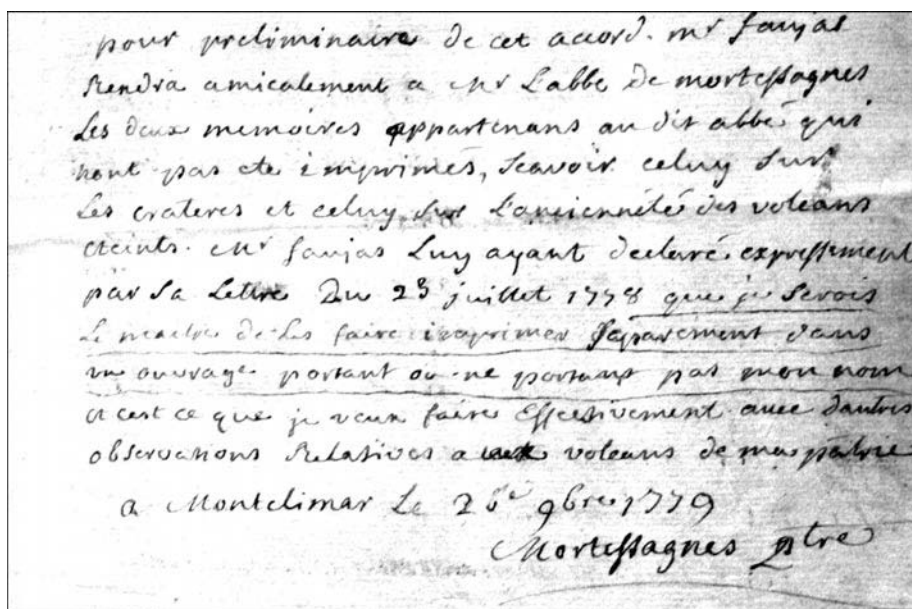 pour preliminaire de cet accord. mr faujas
Rendra amicalement a Mr L'abbe de mortessagnes
Les deux memoires appartenans au dit abbé qui
nont pas ete imprimés, Scavoir celuy Sur
Les crateres et celuy Sur L'ancienneté des volcans
eteints. Mr faujas Luy ayant declaré expressement
par Sa Lettre Du 23 juillet 1778 que je Serois
Le maitre de Les faire imprimer Separement dans
un ouvrage portant ou ne portant pas mon nom
et cest ce que je veux faire Effectivement avec dautres
observations Relatives aux volcans de ma patrie
a Montelimar Le 26e 9bre 1779
Mortessagnes ptre